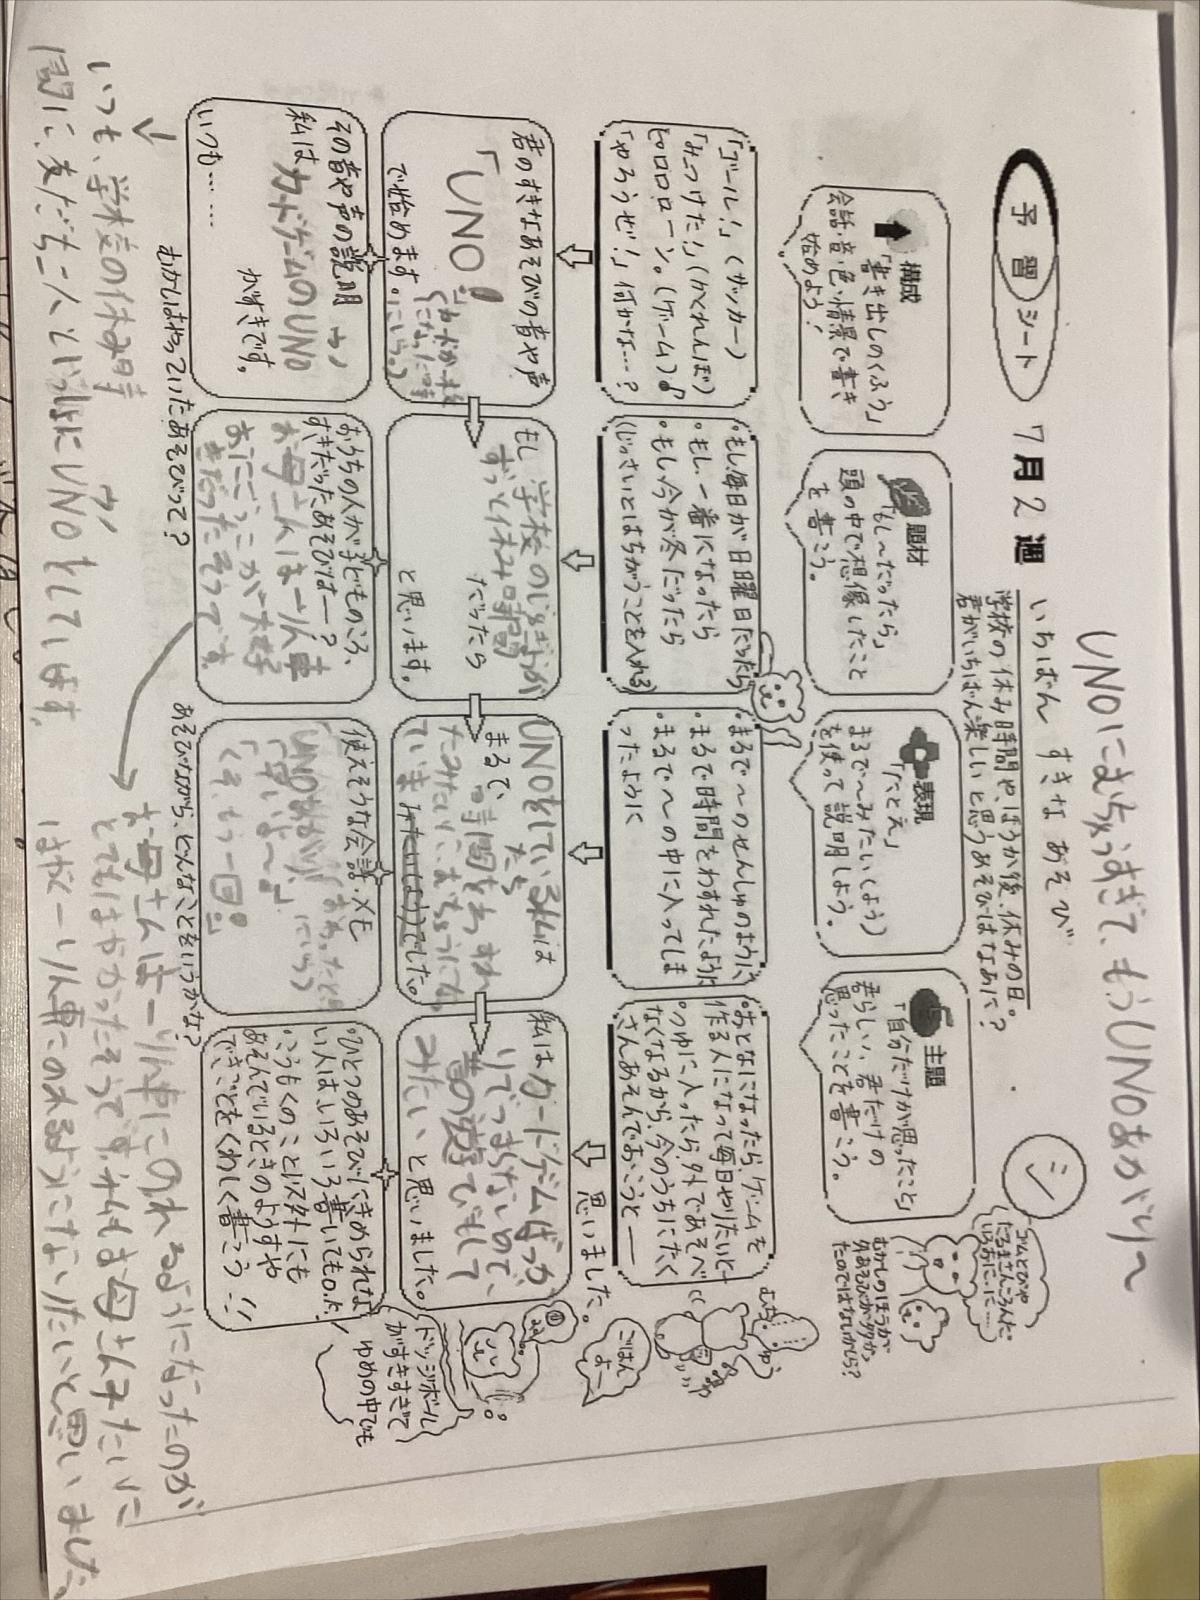 UNOにむちゅうすぎて、もうUNOあがり〜
予習シート 7月2週 いちばん すきな あそび
シ
学校の休み時間や、ほうか後、休みの日。
君がいちばん楽しいと思うあそびはなあに？
ゴムとびや
だるまさんころんだ
いいおに、に……
むかしのほうが
外あそびがおおかっ
たのではないかしら？
構成
「書き出しのくふう」
会話・音・色・情景で書き
始めよう！
題材
「もし〜だったら」
頭の中で想像したこと
を書こう。
表現
「たとえ」
まるで〜みたい(よう)
を使って説明しよう。
主題
「自分だけが思ったこと」
君らしい、君だけの
思ったことを書こう。
「ゴール！」(サッカー)
「みつけた！」(かくれんぼ)
ピロロローン。(ゲーム)♪
「やろうぜ！」何かな…？
・もし、毎日が日曜日だったら
・もし、一番になったら
・もし、今が冬だったら
(じっさいとはちがうことを入れる)
・まるで〜のせんしゅのように
・まるで時間をわすれたように
・まるで〜の中に入ってしま
ったように
・おとなになったら、ゲームを
作る人になって毎日やりたいと―
・つゆに入ったら、外であそべ
なくなるから、今のうちにたく
さんあそんでおこうと――
思いました。
むちゅう
ごはん
よー
君のすきなあそびの音や声
「UNO！」
で始めます。
もし 学校のじゅぎょうが
ずっと休み時間
だったら
と思います。
UNOをしている私は
たち
まるで、時間をわすれ
たみたいに、むちゅうになっ
ていま
みたい(よう)でした。
私はカードゲームばっか
りでつまらないので、
昔の遊びでもして
みたい と思いました。
ドッジボール
がすきすぎて
ゆめの中でも
その音や声の説明
私はカードゲームのUNO
がすきです。
いつも……
おうちの人が子どものころ、
すきだったあそびは――？
お母さんは一りん車
おにごっこが大好
きだったそうです。
使えそうな会話・メモ
「UNOあがり！」
「強いな〜。」
「くそ もう一回！」
・ひとつのあそびにきめられな
い人はいろいろ書いてもO.K
・こうもくのこと以外にも
あそんでいるときのようすや
できごとをくわしく書こう！！
むかしはやっていたあそびって？
あそびながら、どんなことをいうかな？
いつも、学校の休み時
間に、友だち二人といっしょにUNOをしています。
お母さんは一りん車にのれるようになったのが
とてもはやかったそうです。私もお母さんみたいに
はやく一りん車にのれるようになりたいと思いました。